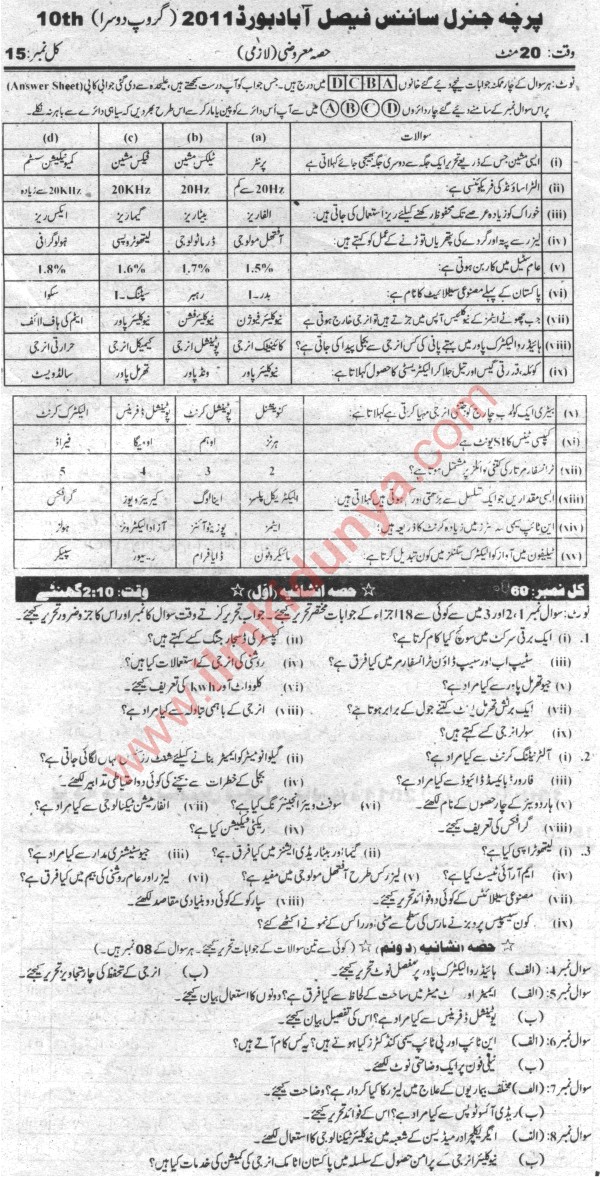 پرچہ جنرل سائنس فیصل آباد بورڈ 2011 (گروپ دوسرا) 10th
وقت: 20 منٹ حصہ معروضی (لازمی) کل نمبر: 15
نوٹ: ہر سوال کے چار ممکنہ جوابات نیچے دیئے گئے خانوں D C B A میں درج ہیں۔ جس جواب کو آپ درست سمجھتے ہیں، علیحدہ سے دی گئی جوابی کاپی (Answer Sheet)
پر اس سوال نمبر کے سامنے دیئے گئے چار دائروں A B C D میں سے آپ اُس دائرے کو پین یا مارکر سے اس طرح بھر دیں کہ سیاہی دائرے سے باہر نہ نکلے۔
سوالات (a) (b) (c) (d)
(i) ایسی مشین جس کے ذریعے تحریر ایک جگہ سے دوسری جگہ بھیجی جائے کہلاتی ہے پرنٹر ٹیلکس مشین فیکس مشین کمیونیکیشن سسٹم
(ii) الٹراساؤنڈ کی فریکوئنسی ہے: 20Hz سے کم 20Hz 20KHz 20KHz سے زیادہ
(iii) خوراک کو زیادہ عرصے تک محفوظ رکھنے کیلئے ریز استعمال کی جاتی ہیں: الفا ریز بیٹا ریز گیما ریز ایکس ریز
(iv) لیزر سے پتہ اور گردے کی پتھریاں توڑنے کے عمل کو کہتے ہیں: آفتھل مولوجی ڈرماٹولوجی لیتھوٹرپسی ہولوگرافی
(v) عام سٹیل میں کاربن ہوتی ہے: 1.5% 1.7% 1.6% 1.8%
(vi) پاکستان کے پہلے مصنوعی سیٹلائیٹ کا نام ہے: بدر-1 رہبر سپٹنگ-1 سکوا
(vii) جب چھوٹے ایٹمز کے نیوکلیئس آپس میں جڑتے ہیں تو انرجی خارج ہوتی ہے نیوکلیئر فیوژن نیوکلیئر فشن نیوکلیئر پاور ایٹم کی ہاف لائف
(viii) ہائیڈرو الیکٹرک پاور میں بہتے پانی کی کس انرجی سے بجلی پیدا کی جاتی ہے؟ کائینیٹک انرجی پوٹینشل انرجی کیمیکل انرجی حرارتی انرجی
(ix) کوئلہ، قدرتی گیس اور تیل جلا کر الیکٹریسٹی کا حصول کہلاتا ہے: نیوکلیئر پاور ونڈ پاور تھرمل پاور سالڈ ویسٹ
(x) بیٹری ایک کولمب چارج کو جتنی انرجی مہیا کرتی ہے کہلاتا ہے: کنوینشنل پوٹینشل کرنٹ پوٹینشل ڈفرینس الیکٹرک کرنٹ
(xi) کپیسی ٹینس کا SI یونٹ ہے ہرٹز اوہم اومیگا فیراڈ
(xii) ٹرانسفارمر تار کی کتنی کوائلز پر مشتمل ہوتا ہے؟ 2 3 4 5
(xiii) ایسی مقداریں جو ایک تسلسل سے بڑھتی اور ہوتی ہیں کہلاتی ہیں: الیکٹریکل پلسز اینالوگ کیریئر ویوز گرافکس
(xiv) این ٹائپ سیمی کنڈکٹرز میں زیادہ کرنٹ کا ذریعہ ہیں: ایٹمز پوزیٹو آئنز آزاد الیکٹرونز ہولز
(xv) ٹیلیفون میں آواز کو الیکٹرک سگنلز میں کون تبدیل کرتا ہے: مائیکروفون ڈایافرام ریسیور سپیکر
کل نمبر: 60 حصہ انشائیہ (اوّل) وقت: 2:10 گھنٹے
نوٹ: سوال نمبر 1، 2 اور 3 میں سے کوئی سے 18 اجزاء کے جوابات مختصر تحریر کیجئے۔ جواب تحریر کرتے وقت سوال کا نمبر اور اس کا جزو ضرور تحریر کیجئے۔
1. (i) ایک برقی سرکٹ میں سوئچ کیا کام کرتا ہے؟ (ii) کپیسٹر کی ڈسچارجنگ کسے کہتے ہیں؟
(iii) سٹیپ اپ اور سیپ ڈاؤن ٹرانسفارمر میں کیا فرق ہے؟ (iv) روشنی کی انرجی کے استعمالات کیا ہیں؟
(v) جیو تھرمل پاور سے کیا مراد ہے؟ (vi) کلوواٹ آور kwh کی تعریف کیجئے۔
(vii) ایک برٹش تھرمل یونٹ کتنے جول کے برابر ہوتا ہے؟ (viii) انرجی کے باہمی تبادلہ سے کیا مراد ہے؟
(ix) سولر انرجی کسے کہتے ہیں؟
2. (i) آلٹرنیٹنگ کرنٹ سے کیا مراد ہے؟ (ii) گیلوانومیٹر کو ایمیٹر بنانے کیلئے شنٹ رزسٹنس کہاں لگائی جاتی ہے؟
(iii) فارورڈ بائیسڈ ڈائیوڈ سے کیا مراد ہے؟ (iv) بجلی کے خطرات سے بچنے کی کوئی دو احتیاطی تدابیر لکھئے۔
(v) ہارڈویئر کے چار حصوں کے نام لکھئے۔ (vi) سوفٹ ویئر انجینئرنگ کیا ہے؟ (vii) انفارمیشن ٹیکنالوجی سے کیا مراد ہے؟
(viii) گرافکس کی تعریف کیجئے۔ (ix) ریکٹی فیکیشن کیا ہے؟
3. (i) لیتھوٹراپسی کیا ہے؟ (ii) گیما اور بیٹا ریڈی ایشنز میں کیا فرق ہے؟ (iii) جیو سٹیشنری مدار سے کیا مراد ہے؟
(iv) ایم آر آئی ٹیسٹ کیا ہے؟ (v) لیزر کس طرح آفتھل مولوجی میں مفید ہے؟ (vi) لیزر اور عام روشنی کی بیم میں کیا فرق ہے؟
(vii) مصنوعی سیٹلائٹس کے کوئی دو فوائد تحریر کیجئے۔ (viii) سپارکو کے کوئی دو بنیادی مقاصد لکھئے۔
(ix) کون سی سپیس پروبز نے مارس کی سطح سے مٹی اور راکس کے نمونے اکٹھے کئے؟
حصہ انشائیہ (دوئم) (کوئی سے تین سوالات کے جوابات تحریر کیجئے۔ ہر سوال کے 08 نمبر ہیں۔
سوال نمبر 4: (الف) ہائیڈرو الیکٹرک پاور پر مفصل نوٹ تحریر کیجئے۔ (ب) انرجی کے تحفظ کی چار تجاویز تحریر کیجئے۔
سوال نمبر 5: (الف) ایمیٹر اور وولٹ میٹر میں ساخت کے لحاظ سے کیا فرق ہے؟ دونوں کا استعمال بیان کیجئے۔
(ب) پوٹینشل ڈفرینس سے کیا مراد ہے؟ اس کی تفصیل بیان کیجئے۔
سوال نمبر 6: (الف) این ٹائپ اور پی ٹائپ سیمی کنڈکٹرز کیا ہوتے ہیں؟ یہ کس کام آتے ہیں؟
(ب) ٹیلی فون پر ایک وضاحتی نوٹ لکھئے۔
سوال نمبر 7: (الف) مختلف بیماریوں کے علاج میں لیزر کا کیا کردار ہے؟ وضاحت کیجئے۔
(ب) ریڈی آئسوٹوپس سے کیا مراد ہے؟ اس کے فوائد تحریر کیجئے۔
سوال نمبر 8: (الف) ایگریکلچر اور میڈیسن کے شعبہ میں نیوکلیئر ٹیکنالوجی کا استعمال لکھئے۔
(ب) نیوکلیئر انرجی کے پرامن حصول کے سلسلہ میں پاکستان اٹامک انرجی کمیشن کی خدمات کیا ہیں؟
www.ilmkidunya.com